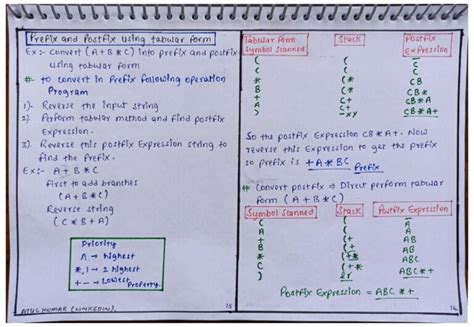 Prefix and Postfix using tabular form
Ex:- Convert (A+B*C) into prefix and postfix
using tabular form
# to convert in Prefix following operation
Program
1). Reverse the input string
2) Perform tabular method and find postfix
Expression.
3) Reverse this postfix Expression string to
find the Prefix.
Ex:- A + B * C
First to add branches
(A + B * C)
Reverse string
(C * B + A)
Priority
^ → highest
*, / → 2 highest
+ - → Lowest
Property.
ATUL KUMAR (LINKEDIN).
15
Tabular form
Symbol Scanned
Stack
Postfix
Expression
( ( -
C ( C
* (* C
B (* CB
+ (+ CB*
A (+ CB*A
) CB*A+
So the postfix Expression CB*A+. Now
reverse this Expression to get the prefix
so prefix is +A*BC
Prefix
# Convert postfix ⇒ Direct perform tabular
form (A+B*C)
Symbol Scanned Stack Postfix Expression
( (
A ( A
+ (+ A
B (+ AB
* (+* AB
C (+* ABC
) ABC*+
Postfix Expression = ABC*+
16